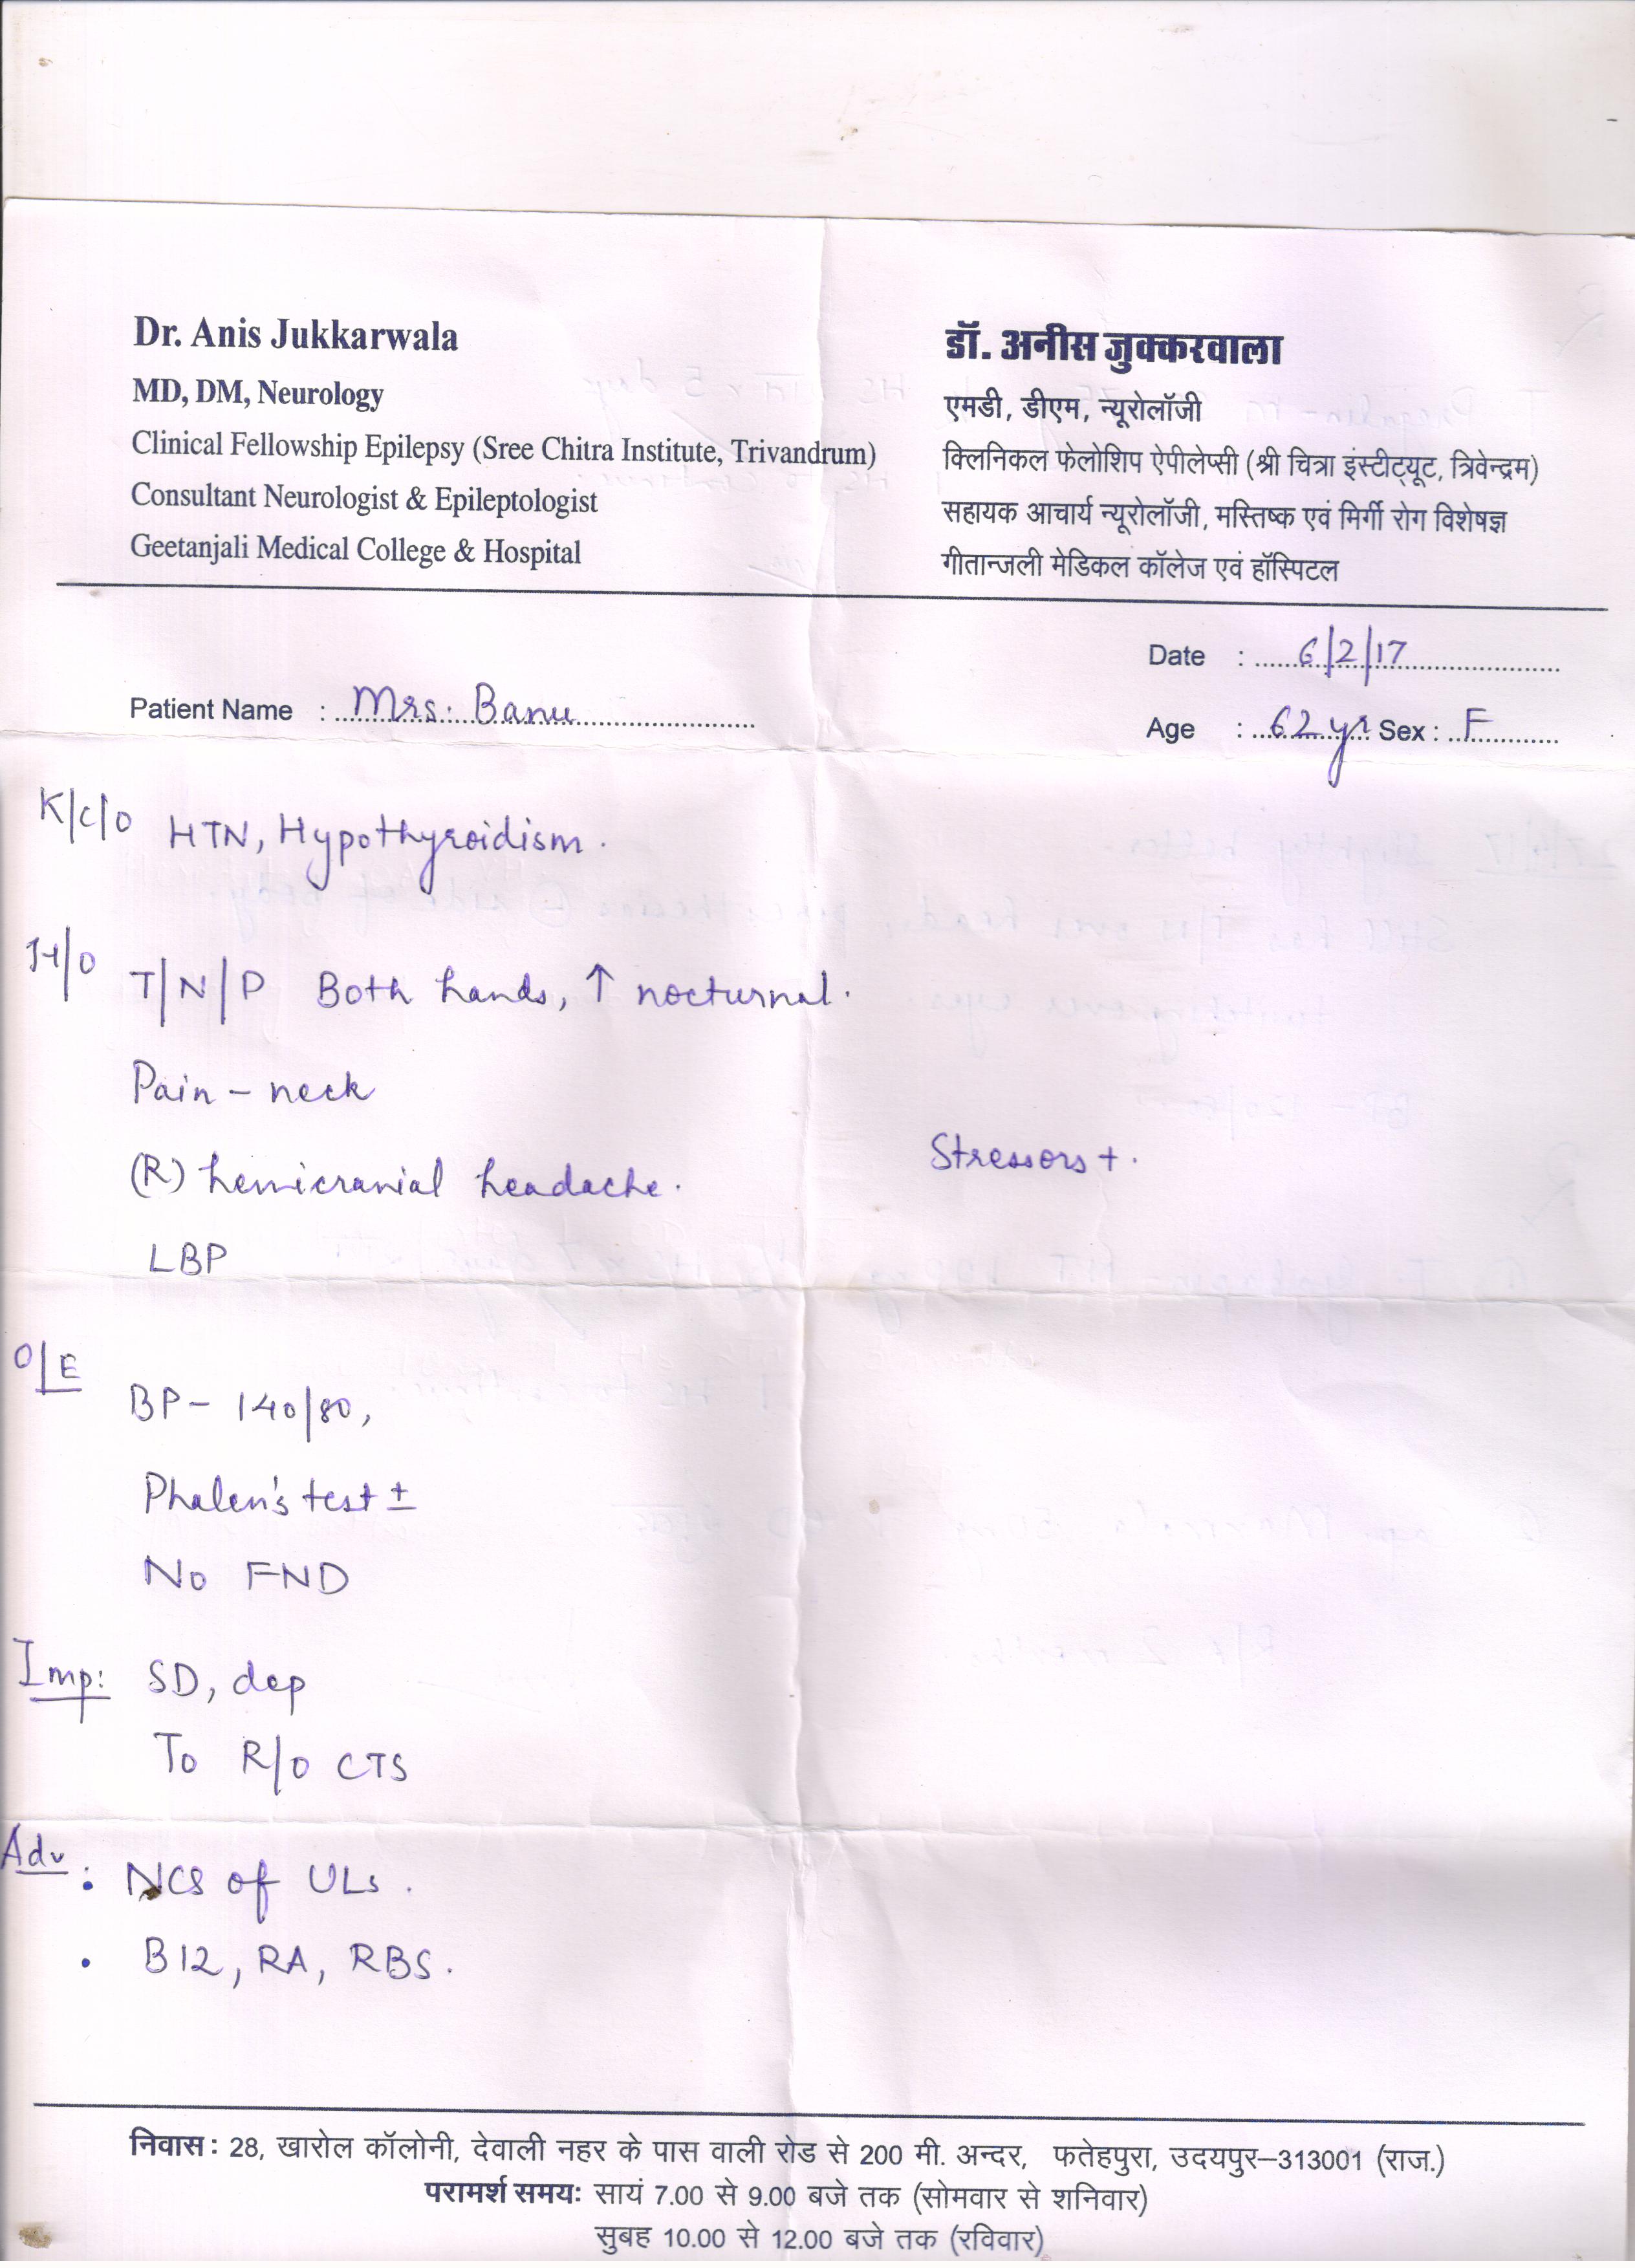 Dr. Anis Jukkarwala
MD, DM, Neurology
Clinical Fellowship Epilepsy (Sree Chitra Institute, Trivandrum)
Consultant Neurologist & Epileptologist
Geetanjali Medical College & Hospital
डॉ. अनीस जुक्करवाला
एमडी, डीएम, न्यूरोलॉजी
क्लिनिकल फेलोशिप ऐपीलेप्सी (श्री चित्रा इंस्टीट्यूट, त्रिवेन्द्रम)
सहायक आचार्य न्यूरोलॉजी, मस्तिष्क एवं मिर्गी रोग विशेषज्ञ
गीतान्जली मेडिकल कॉलेज एवं हॉस्पिटल
Date : 6/2/17
Patient Name : Mrs. Banu
Age : 62 yr Sex : F
K/c/o HTN, Hypothyroidism.
H/o T/N/P Both hands, ↑ nocturnal.
Pain - neck
(R) hemicranial headache.
Stressors +.
LBP
O/E
BP - 140/80,
Phalen's test ±
No FND
Imp: SD, dep
To R/o CTS
Adv:
• NCS of ULs.
• B12, RA, RBS.
निवास : 28, खारोल कॉलोनी, देवाली नहर के पास वाली रोड से 200 मी. अन्दर, फतेहपुरा, उदयपुर–313001 (राज.)
परामर्श समयः सायं 7.00 से 9.00 बजे तक (सोमवार से शनिवार)
सुबह 10.00 से 12.00 बजे तक (रविवार)